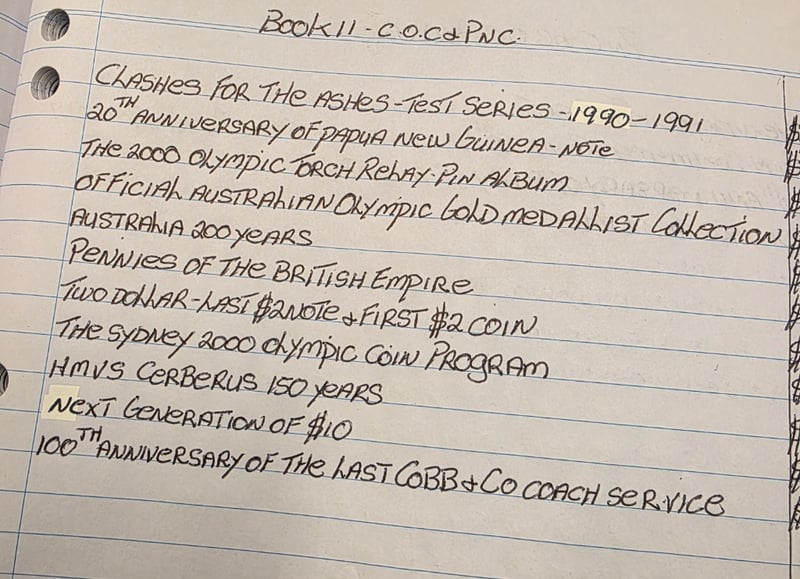 BOOK 11 - C.O.C & PNC.
CLASHES FOR THE ASHES - TEST SERIES - 1990 - 1991
20TH ANNIVERSARY OF PAPUA NEW GUINEA - NOTE
THE 2000 OLYMPIC TORCH RELAY - PIN ALBUM
OFFICIAL AUSTRALIAN OLYMPIC GOLD MEDALLIST COLLECTION
AUSTRALIA 200 YEARS
PENNIES OF THE BRITISH EMPIRE
TWO DOLLAR - LAST $2 NOTE & FIRST $2 COIN
THE SYDNEY 2000 OLYMPIC COIN PROGRAM
HMVS CERBERUS 150 YEARS
NEXT GENERATION OF $10
100TH ANNIVERSARY OF THE LAST COBB & CO COACH SERVICE